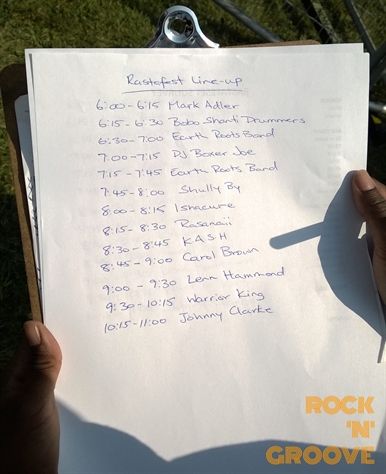 Rastafest Line-up
6:00 - 6:15 Mark Adler
6:15 - 6:30 Bobo Shanti Drummers
6:30 - 7:00 Earth Roots Band
7:00 - 7:15 DJ Boxer Joe
7:15 - 7:45 Earth Roots Band
7:45 - 8:00 Shully By
8:00 - 8:15
8:15 - 8:30
8:30 - 8:45 KASH
8:45 - 9:00 Carol Brown
9:00 - 9:30 Lenn Hammond
9:30 - 10:15 Warrior King
10:15 - 11:00 Johnny Clarke
ROCK
'N'
GROOVE